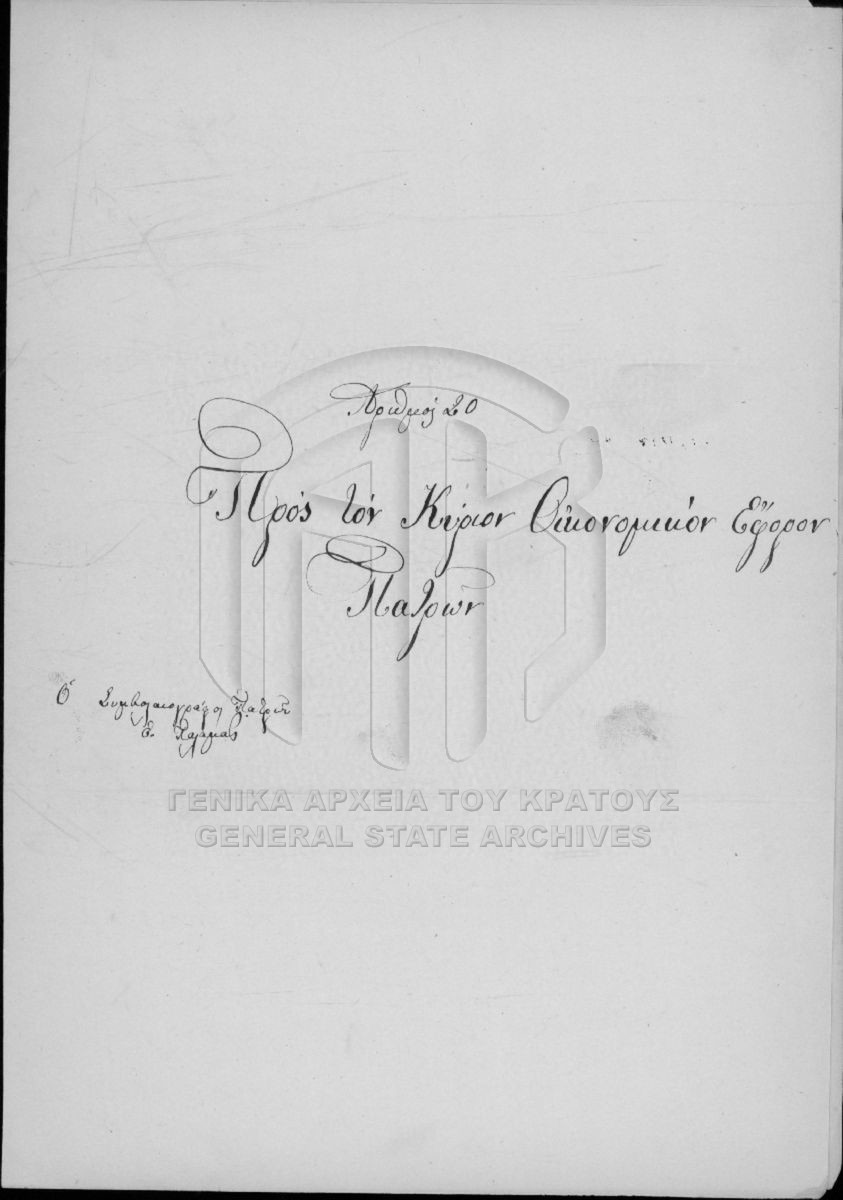 Αριθμός 20
Πρός τόν Κύριον Οἰκονομικόν Εφορον
Πατρῶν
Ὁ Συμβολαιογράφος Πατρῶν
Ε. Παλαμᾶς
ΓΕΝΙΚΑ ΑΡΧΕΙΑ ΤΟΥ ΚΡΑΤΟΥΣ
GENERAL STATE ARCHIVES